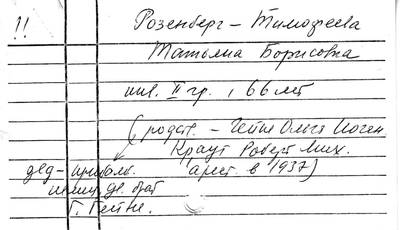 !! Розенберг – Тимофеева
Татьяна Борисовна
инв. II гр., 66 лет
(родств. – Гейне Ольга Иоген
Краут Роберт Мих.
арест. в 1937)
дед –
брат
Г. Гейне.